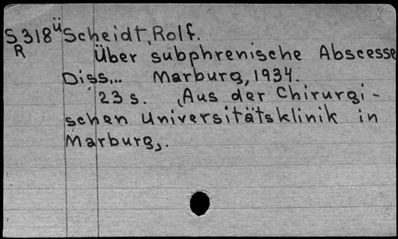 S318ü Scheidt, Rolf.
R Über subphrenische Abscesse
Diss... Marburg, 1934.
23 s. „Aus der Chirurgi-
schen Universitätsklinik in
Marburg„.